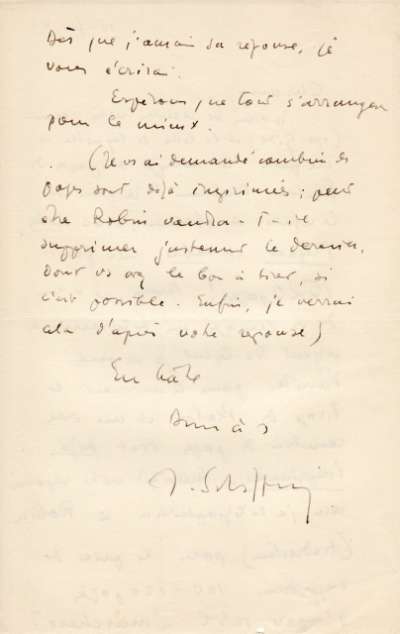 Dès que j'aurai sa réponse, je
vous écrirai.
Espérons que tout s'arrangera
pour le mieux.
(Je vs ai demandé combien de
pages sont déjà imprimées ; peut
être Robin voudra-t-il
supprimer justement le dernier,
dont vs avez le bon à tirer, si
c'est possible. Enfin, je verrai
cela d'après votre réponse)
En hâte